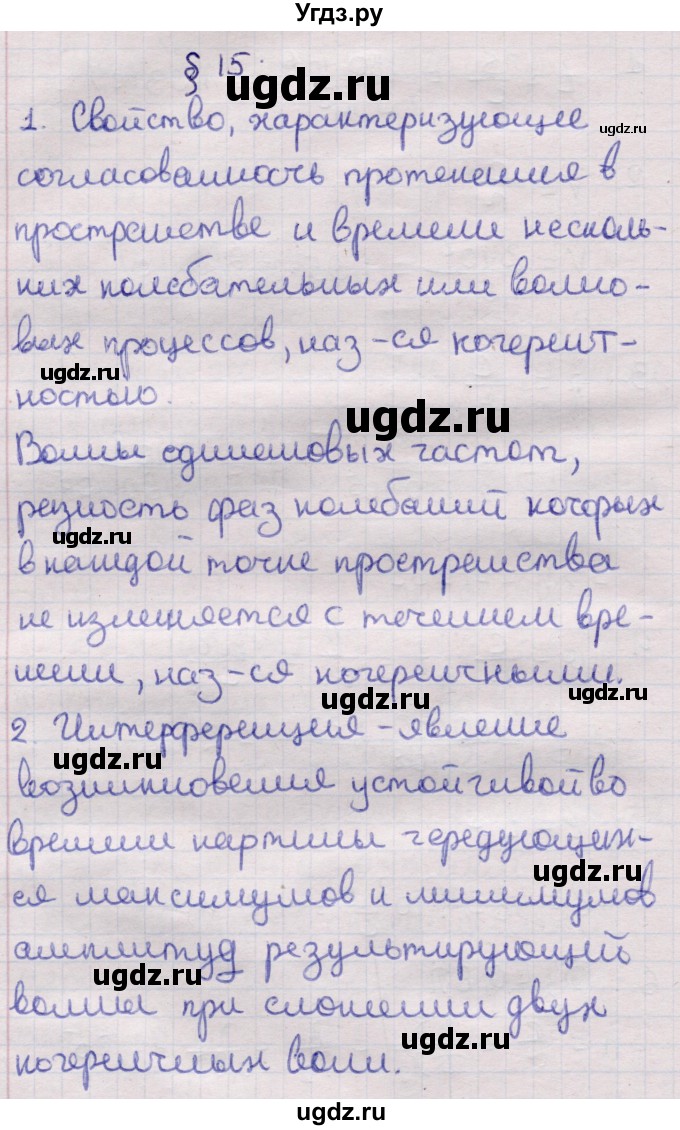 Угдз.ру
§ 15.
ugdz.ru
1. Свойство, характеризующее
ugdz.ru
согласованность протекания в
пространстве и времени несколь-
ких колебательных или волно-
вых процессов, наз-ся когерент-
ugdz.ru
ностью.
ugdz.ru
Волны одинаковых частот,
разность фаз колебаний которых
ugdz.ru
в каждой точке пространства
не изменяется с течением вре-
мени, наз-ся когерентными.
ugdz.ru
ugdz.ru
2. Интерференция - явление
ugdz.ru
возникновения устойчивой во
времени картины чередующих-
ugdz.ru
ся максимумов и минимумов
амплитуд результирующей
ugdz.ru
волны при сложении двух
ugdz.ru
когерентных волн.
ugdz.ru